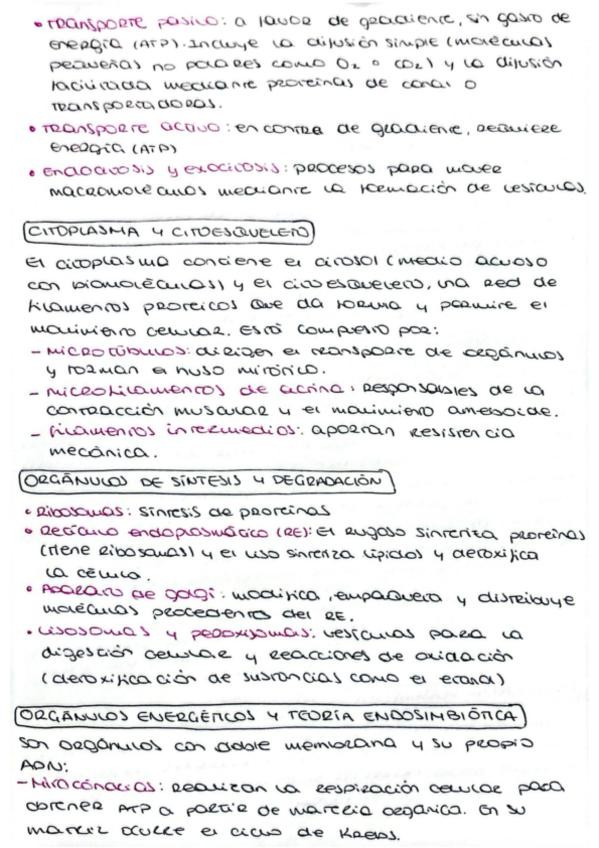 • Transporte pasivo: a favor de gradiente, sin gasto de
energía (ATP). Incluye la difusión simple (moléculas
pequeñas no polares como O₂ o CO₂) y la difusión
facilitada mediante proteínas de canal o
transportadoras.
• Transporte activo: en contra de gradiente, requiere
energía (ATP)
• Endocitosis y exocitosis: procesos para mover
macromoléculas mediante la formación de vesículas.
CITOPLASMA Y CITOESQUELETO
El citoplasma contiene el citosol (medio acuoso
con biomoléculas) y el citoesqueleto, una red de
filamentos proteicos que da forma y permite el
movimiento celular. Está compuesto por:
- Microtúbulos: dirigen el transporte de orgánulos
y forman el huso mitótico.
- Microfilamentos de actina: responsables de la
contracción muscular y el movimiento ameboide.
- Filamentos intermedios: aportan resistencia
mecánica.
ORGÁNULOS DE SÍNTESIS Y DEGRADACIÓN
• Ribosomas: síntesis de proteínas
• Retículo endoplasmático (RE): El rugoso sintetiza proteínas
(tiene ribosomas) y el liso sintetiza lípidos y detoxifica
la célula.
• Aparato de golgi: modifica, empaqueta y distribuye
moléculas procedentes del RE.
• Lisosomas y peroxisomas: vesículas para la
digestión celular y reacciones de oxidación
(detoxificación de sustancias como el etanol)
ORGÁNULOS ENERGÉTICOS Y TEORÍA ENDOSIMBIÓTICA
Son orgánulos con doble membrana y su propio
ADN:
- Mitocóndrias: realizan la respiración celular para
obtener ATP a partir de materia orgánica. En su
matriz ocurre el ciclo de Krebs.